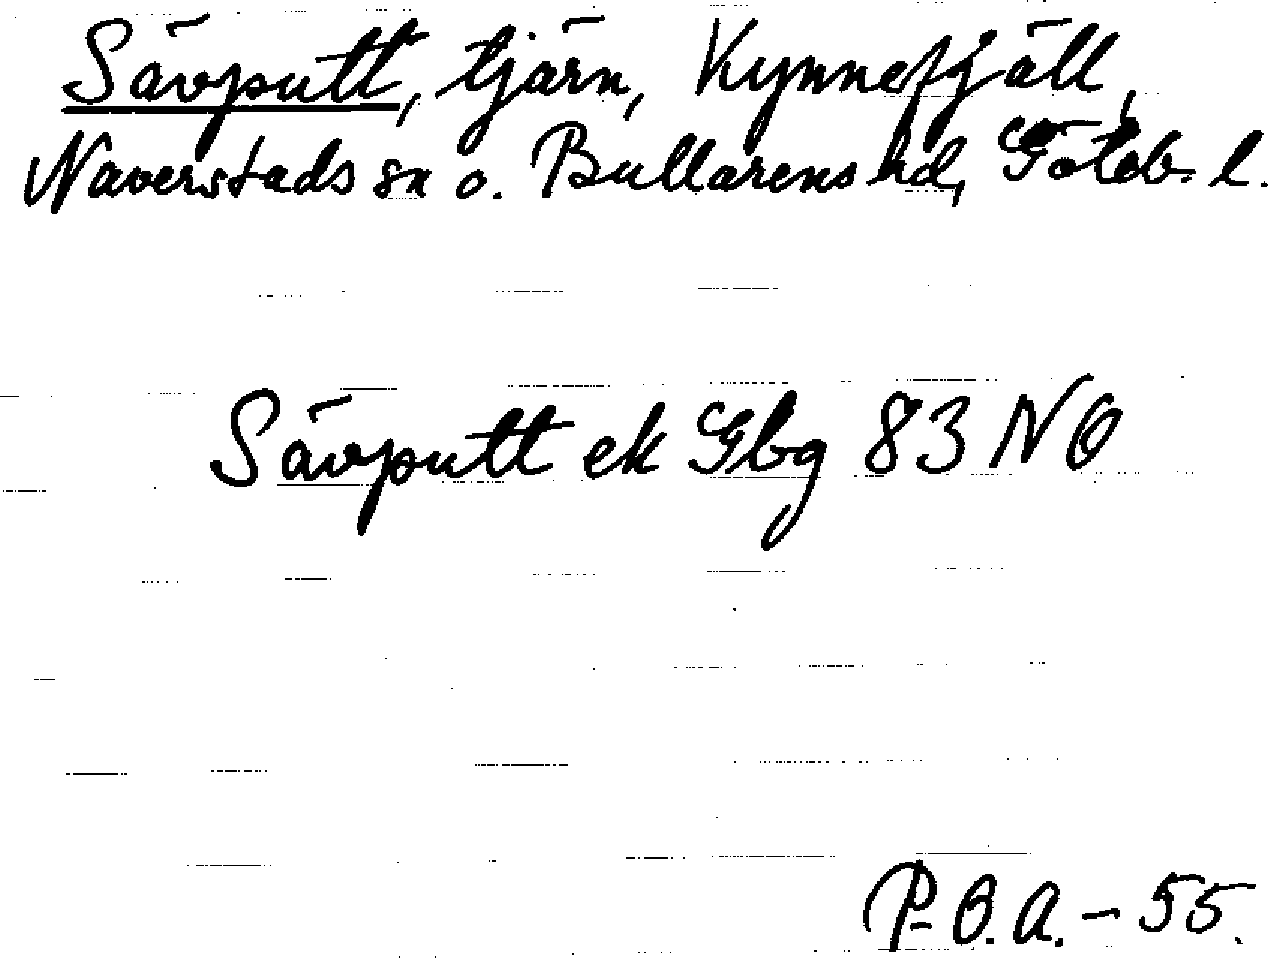 Sävputt, tjärn, Kynnefjäll,
Naverstads sn o. Bullarens hd, Göteb. l.
Sävputt ek Gbg 83 NO
P-O.A.-55.